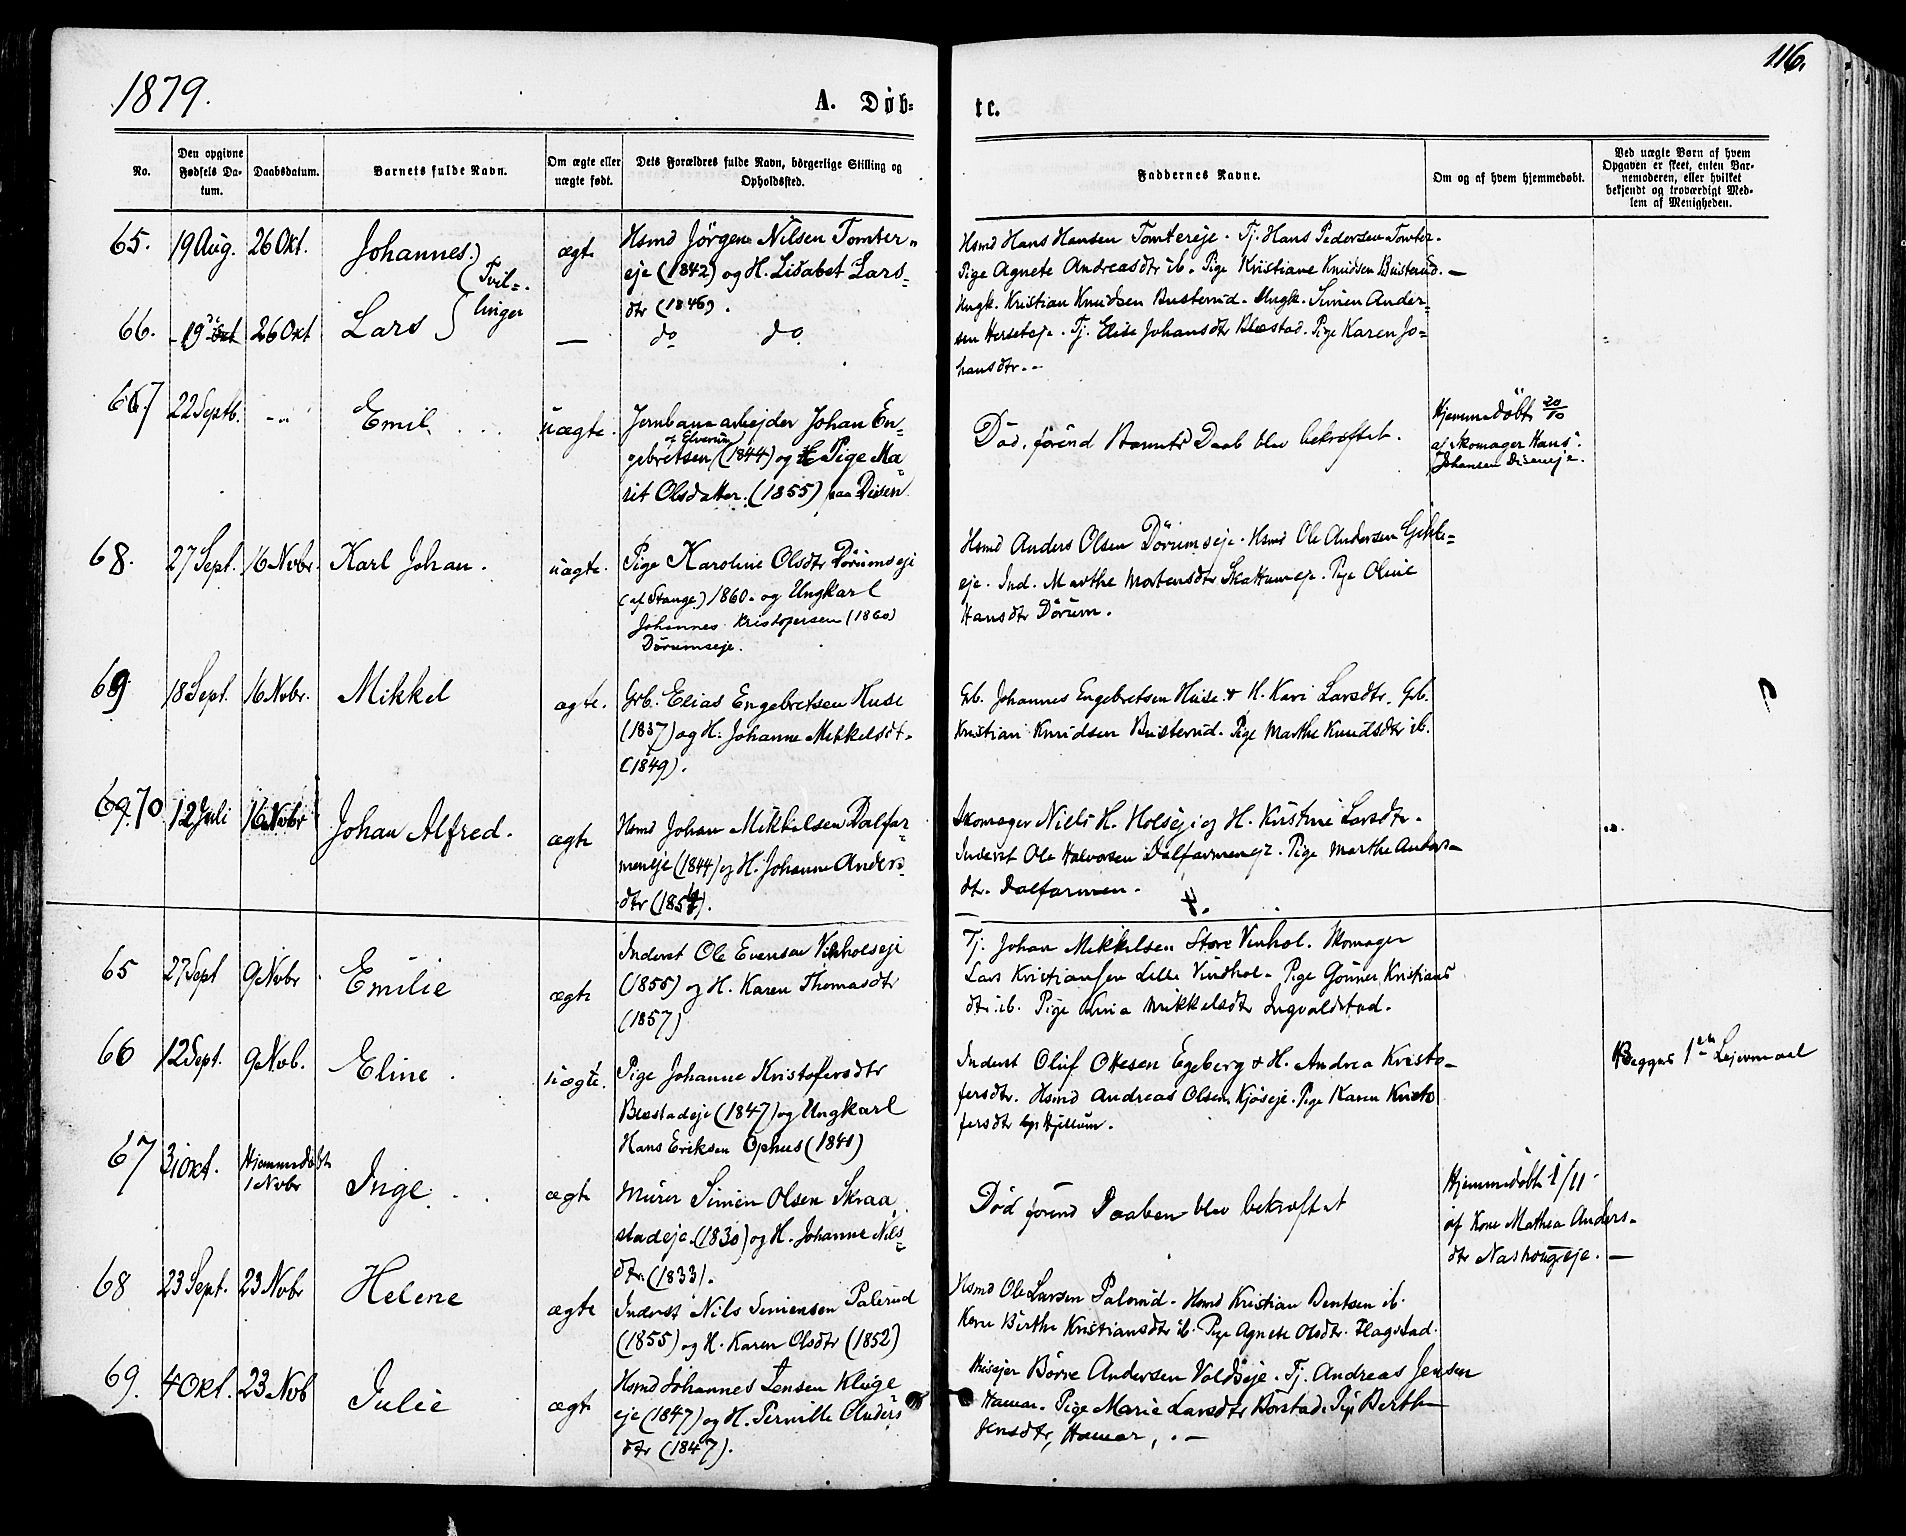 1879.
116.
A. Døb-
te.
No.
Den opgivne Fødsels Da-tum.
Daabsdatum.
Barnets fulde Navn.
Om ægte eller uægte født.
Dets Forældres fulde Navn, borgerlige Stilling og Opholdssted.
Faddernes Navne.
Om og af hvem hjemmedøbt.
Ved uægte Børn af hvem Opgaven er skeet, enten Bar-nemoderen, eller hvilket bekjendt og troværdigt Med-lem af Menigheden.
65. 19 Aug. 26 Okt. Johannes } Tvil-linger ægte
Hsmd Jörgen Nilsen Tomter-
eje (1842) og H. Lisabet Lars-
dtr (1846).
Hsmd Hans Hansen Tomtereje. Tj. Hans Pedersen Tomter.
Pige Agnete Andreasdtr ib. Pige Kristiane Knudsen Busterud. —
Ungk. Kristian Knudsen Busterud. Ungk. Simen Ander-
sen Herseteje. Tj. Elise Johansdtr Blæstad. Pige Karen Jo-
hansdtr. -
66. 19 26 Okt Lars — do do
67. 22 Septb. -"- Emil. uægte.
Jernbanearbejder Johan En-
gebretsen af Elverum (1844) og Pige Ma-
rit Olsdatter. (1855) paa Disen
Död, förend Barnets Daab blev bekræftet.
Hjemmedöbt 20/10
af Skomager Hans
Johansen Diseneje.
68. 27 Sept. 16 Nobr. Karl Johan. uægte.
Pige Karoline Olsdtr Dörumseje
(af Stange) 1860. og Ungkarl
Johannes Kristofersen (1860)
Dörumseje.
Hsmd Anders Olsen Dörumseje. Hsmd Ole Andersen
eje. Ind. Marthe Mortensdtr Skattumeje. Pige Oline
Hansdtr Dörum.
69 18 Sept. 16 Nobr. Mikkel ægte.
Grb. Elias Engebretsen Huse
(1837) og H. Johanne Mikkelsdt.
(1849).
Grb. Johannes Engebretsen Huse & H. Kari Larsdtr. Grb.
Kristian Knudsen Busterud. Pige Marthe Knudsdtr ib.
69. 70 12 Juli 16 Nobr Johan Alfred. ægte
Hsmd Johan Mikkelsen Dalfar-
meneje (1844) og H. Johanne Anders-
dtr (185).
Skomager Niels H. Holseje og H. Kristine Larsdtr.
Inderst Ole Halvorsen Dalfarmeneje. Pige Marthe Anders-
dtr. Dalfarmen.
65 27 Sept 9 Nobr. Emilie ægte
Inderst Ole Evensen Vinholseje
(1855) og H. Karen Thomasdtr
(1857)
Tj. Johan Mikkelsen Store Vinhol. Skomager
Lars Kristiansen Lille Vindhol. Pige Gunner Kristians
dtr. ib. Pige Lina Mikkelsdtr Ingvaldstad.
66 12 Sept. 9 Nob. Eline. uægte.
Pige Johanne Kristofersdtr
Blæstadeje (1847) og Ungkarl
Hans Eriksen Ophus (1841)
Inderst Oluf Olsen Egeberg & H. Andrea Kristo-
fersdtr. Hsmd Andreas Olsen Kjöseje. Pige Karen Kristo
fersdtr Hjellum.
Begges 1ste Lejermaal
67 31 Okt. Hjemmedöbt 1 Nobr Inge. ægte
Murer Simen Olsen Skraa
stadeje. (1830) og H. Johanne Nils-
dtr. (1833).
Död förend Daaben blev bekræftet
Hjemmedöbt 1/11.
af Kone Mathea Anders-
dtr Nashougeje. —
68 23 Sept. 23 Nobr Helene ægte
Inderst Nils Simensen Palerud
(1855) og H. Karen Olsdtr (1852)
Hsmd Ole Larsen Palerud. Hsmd Kristian Bentsen ib.
Kone Birthe Kristiansdtr ib. Pige Agnete Olsdtr. Flagstad.
69. 4 Okt. 23 Nob Julie ægte
Hsmd Johannes Jensen Kluge
eje (1847) og H. Pernille Anders
dtr (1847).
Husejer Börre Andersen Voldseje. Tj. Andreas Jensen
Hamar. Pige Marie Larsdtr Börstad. Pige Berthe
Jensdtr, Hamar, . —